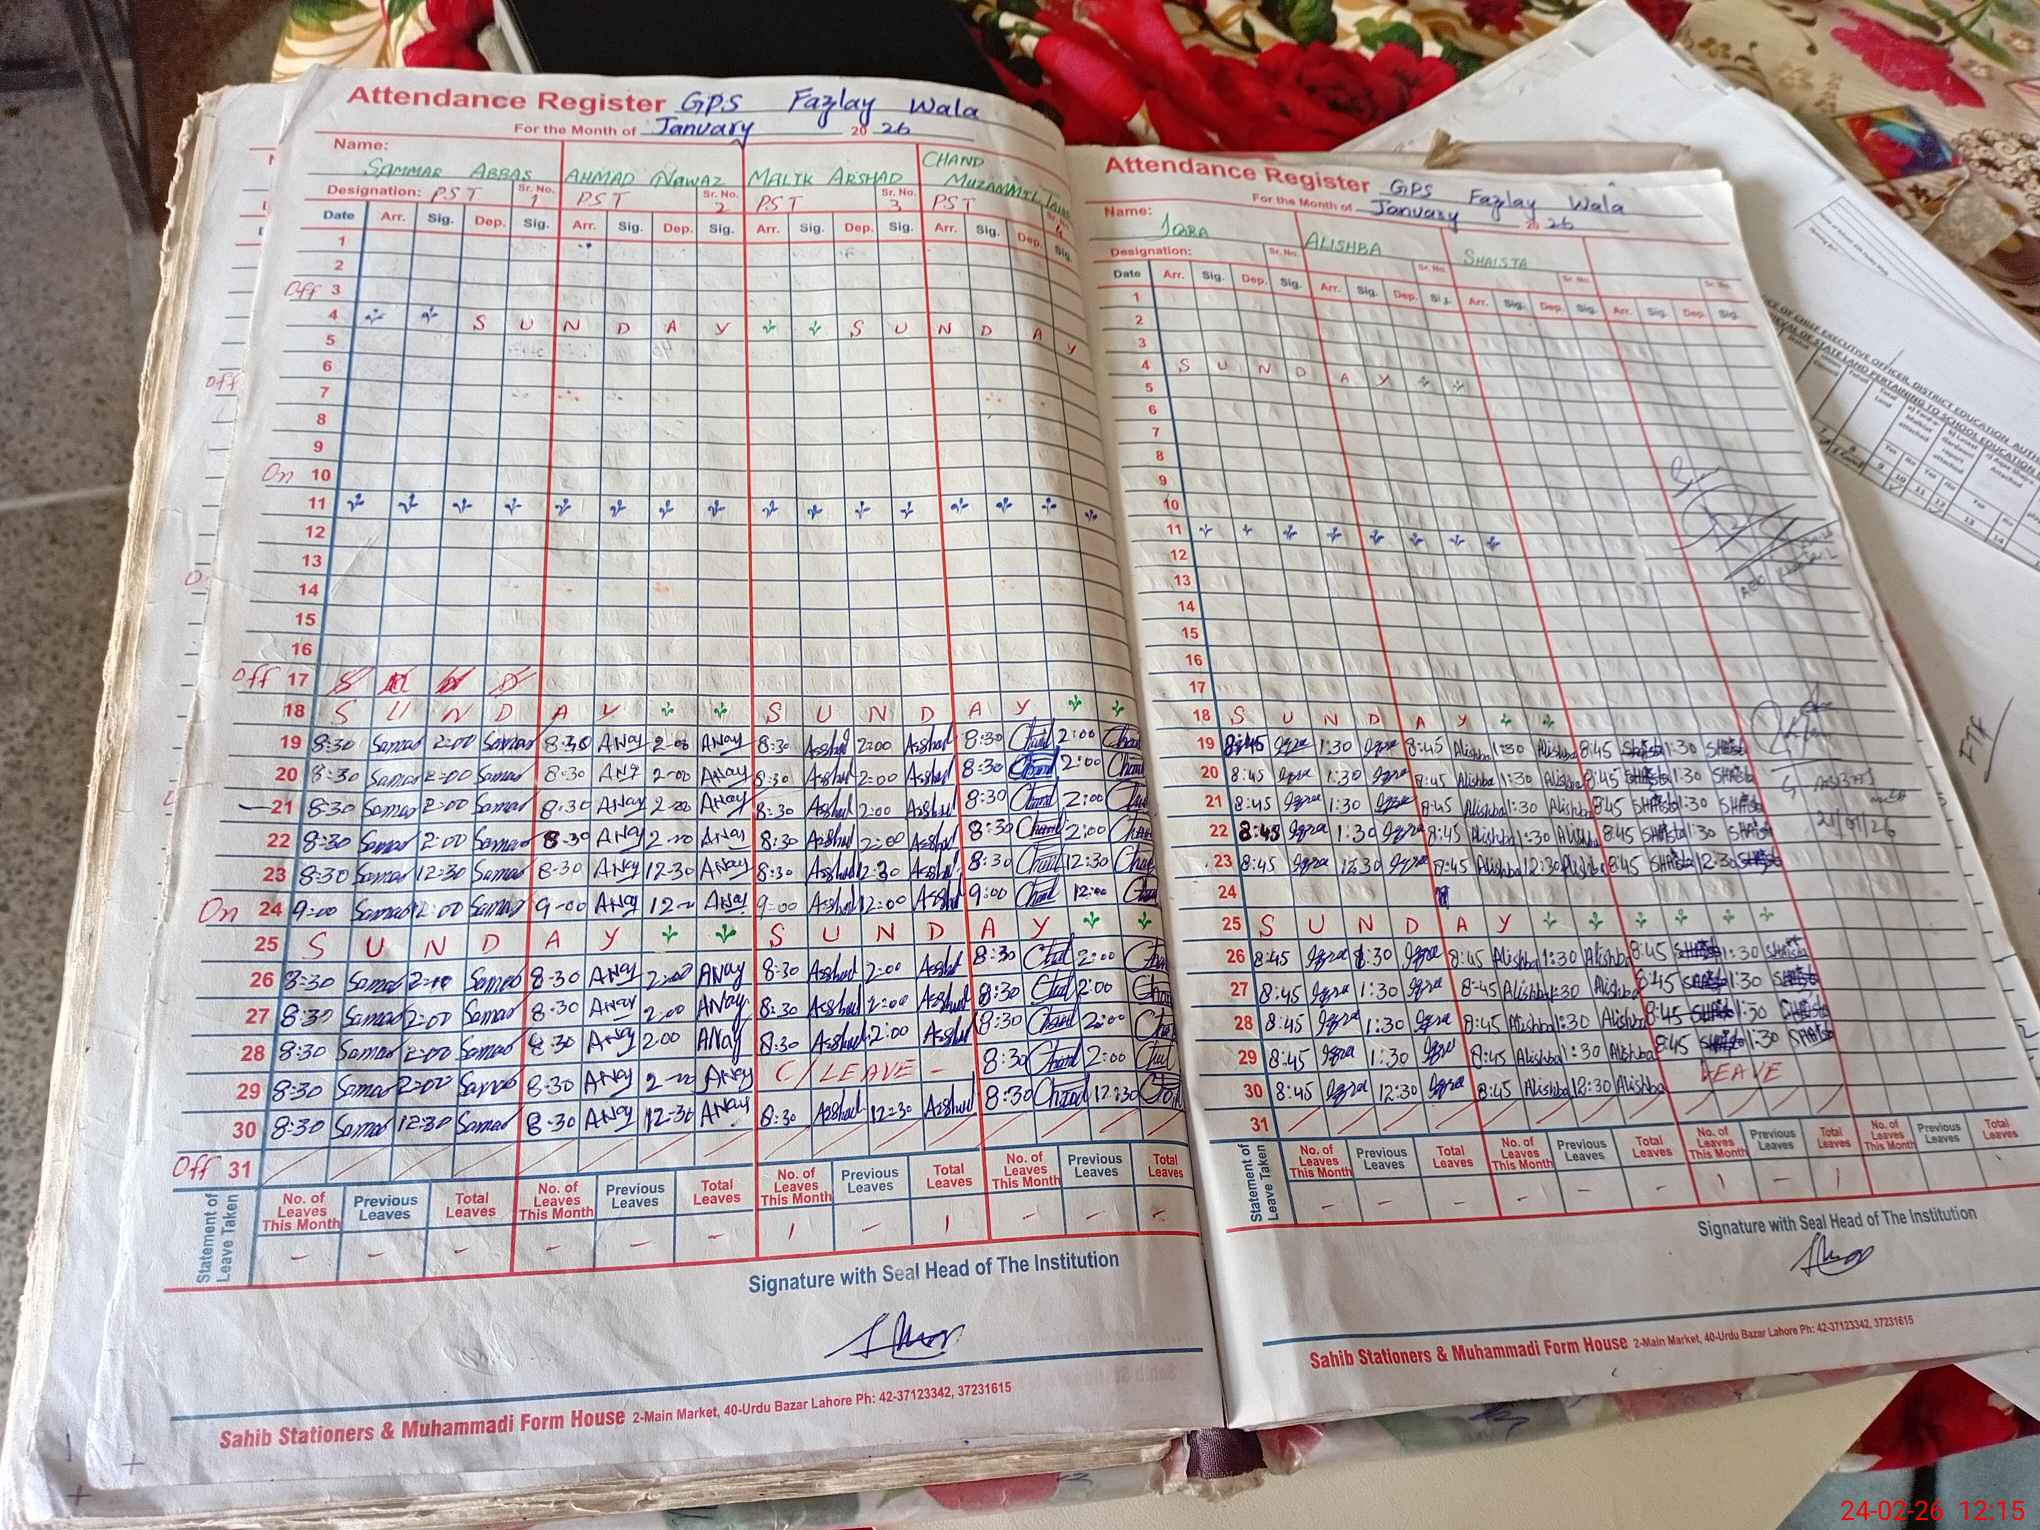 Attendance Register GPS Fazlay Wala
For the Month of January 2026
Name: SAMMAR ABBAS AHMAD NAWAZ MALIK ARSHAD CHAND MUZAMMIL
Designation: PST Sr. No. 1 PST Sr. No. 2 PST Sr. No. 3 PST
Date Arr. Sig. Dep. Sig. Arr. Sig. Dep. Sig. Arr. Sig. Dep. Sig. Arr. Sig. Dep. Sig.
1
2
Off 3
4 S U N D A Y S U N D A Y
5
6
7
8
9
On 10
11
12
13
14
15
16
Off 17
18 S U N D A Y S U N D A Y
19 8:30 Samar 2:00 Samar 8:30 ANay 2-00 ANay 8:30 Asshad 2:00 Asshad 8:30 Chand 2:00
20 8:30 Samar 2:00 Samar 8:30 2-00 ANay 8:30 Asshad 2:00 Asshad 8:30 Chand 2:00
21 8:30 Samar 2:00 Samar 8:30 ANay 2-00 ANay 8:30 Asshad 2:00 Asshad 8:30 Chand 2:00
22 8:30 Samar 2:00 Samar 8-30 ANay 2-00 ANay 8:30 Asshad 2:00 Asshad 8:30 Chand 2:00
23 8:30 Samar 12:30 Samar 8-30 ANay 12-30 ANay 8:30 Asshad 8:30 Chand 12:30
On 24 9:00 Samar 12:00 Samar 9-00 ANay ANay 9:00 Asshad 12:00 Asshad 9:00 Chand 12:00
25 S U N D A Y S U N D A Y
26 8:30 Samar Samar 8-30 ANay 2:00 ANay 8:30 Asshad 2:00 Asshad 8:30 2:00
27 8:30 Samar 2:00 Samar 8:30 ANay 2:00 ANay 8:30 Asshad 2:00 Asshad 8:30 2:00
28 8:30 Samar 2:00 Samar 8:30 ANay 2:00 ANay 8:30 Asshad 2:00 Asshad 8:30 Chand 2:00
29 8:30 Samar 2:00 Samar 8:30 ANay 2-00 ANay C/LEAVE - 8:30 Chand 2:00
30 8:30 Samar 12:30 Samar 8-30 ANay 12-30 ANay 8:30 Asshad 12-30 Asshad 8:30 Chand 12:30
Off 31
Statement of Leave Taken
No. of Leaves This Month Previous Leaves Total Leaves No. of Leaves This Month Previous Leaves Total Leaves No. of Leaves This Month Previous Leaves Total Leaves No. of Leaves This Month Previous Leaves Total Leaves
- - - - - - 1 - 1 - - -
Signature with Seal Head of The Institution
Sahib Stationers & Muhammadi Form House 2-Main Market, 40-Urdu Bazar Lahore Ph: 42-37123342, 37231615
Attendance Register GPS Fazlay Wala
For the Month of January 2026
Name: IQRA ALISHBA SHAISTA
Designation: Sr. No. Sr. No. Sr. No. Sr. No.
Date Arr. Sig. Dep. Sig. Arr. Sig. Dep. Sig. Arr. Sig. Dep. Sig. Arr. Sig. Dep. Sig.
1
2
3
4 S U N D A Y
5
6
7
8
9
10
11
12
13
14
15
16
17
18 S U N D A Y
19 8:45 Iqra 1:30 Iqra 8:45 Alishba 1:30 Alishba 8:45 SHAista 1:30 SHAista
20 8:45 Iqra 1:30 Iqra 8:45 Alishba 1:30 Alishba 8:45 SHAista 1:30 SHAista
21 8:45 Iqra 1:30 Iqra 8:45 Alishba 1:30 Alishba 8:45 SHAista 1:30 SHAista
21/01/26
22 8:45 Iqra 1:30 Iqra 8:45 Alishba 1:30 Alishba 8:45 SHAista 1:30 SHAista
23 8:45 Iqra 12:30 Iqra 8:45 Alishba 12:30 Alishba 8:45 SHAista 12:30 SHAista
24
25 S U N D A Y
26 8:45 Iqra 1:30 Iqra 8:45 Alishba 1:30 Alishba 8:45 SHAista 1:30 SHAista
27 8:45 Iqra 1:30 Iqra 8-45 Alishba 1:30 Alishba 8:45 SHAista 1:30 SHAista
28 8:45 Iqra 1:30 Iqra 8:45 Alishba 1:30 Alishba 8:45 SHAista 1:30 SHAista
29 8:45 Iqra 1:30 Iqra 8:45 Alishba 1:30 Alishba 8:45 SHAista 1:30 SHAista
30 8:45 Iqra 12:30 Iqra 8:45 Alishba 12:30 Alishba LEAVE
31
Statement of Leave Taken
No. of Leaves This Month Previous Leaves Total Leaves No. of Leaves This Month Previous Leaves Total Leaves No. of Leaves This Month Previous Leaves Total Leaves No. of Leaves This Month Previous Leaves Total Leaves
- - - - - - 1 - 1
Signature with Seal Head of The Institution
Sahib Stationers & Muhammadi Form House 2-Main Market, 40-Urdu Bazar Lahore Ph: 42-37123342, 37231615
CE OF CHIEF EXECUTIVE OFFICER, DISTRICT EDUCATION AUTH
OF STATE LAND PERTAINING TO SCHOOL EDUCATION
24-02-26 12:15